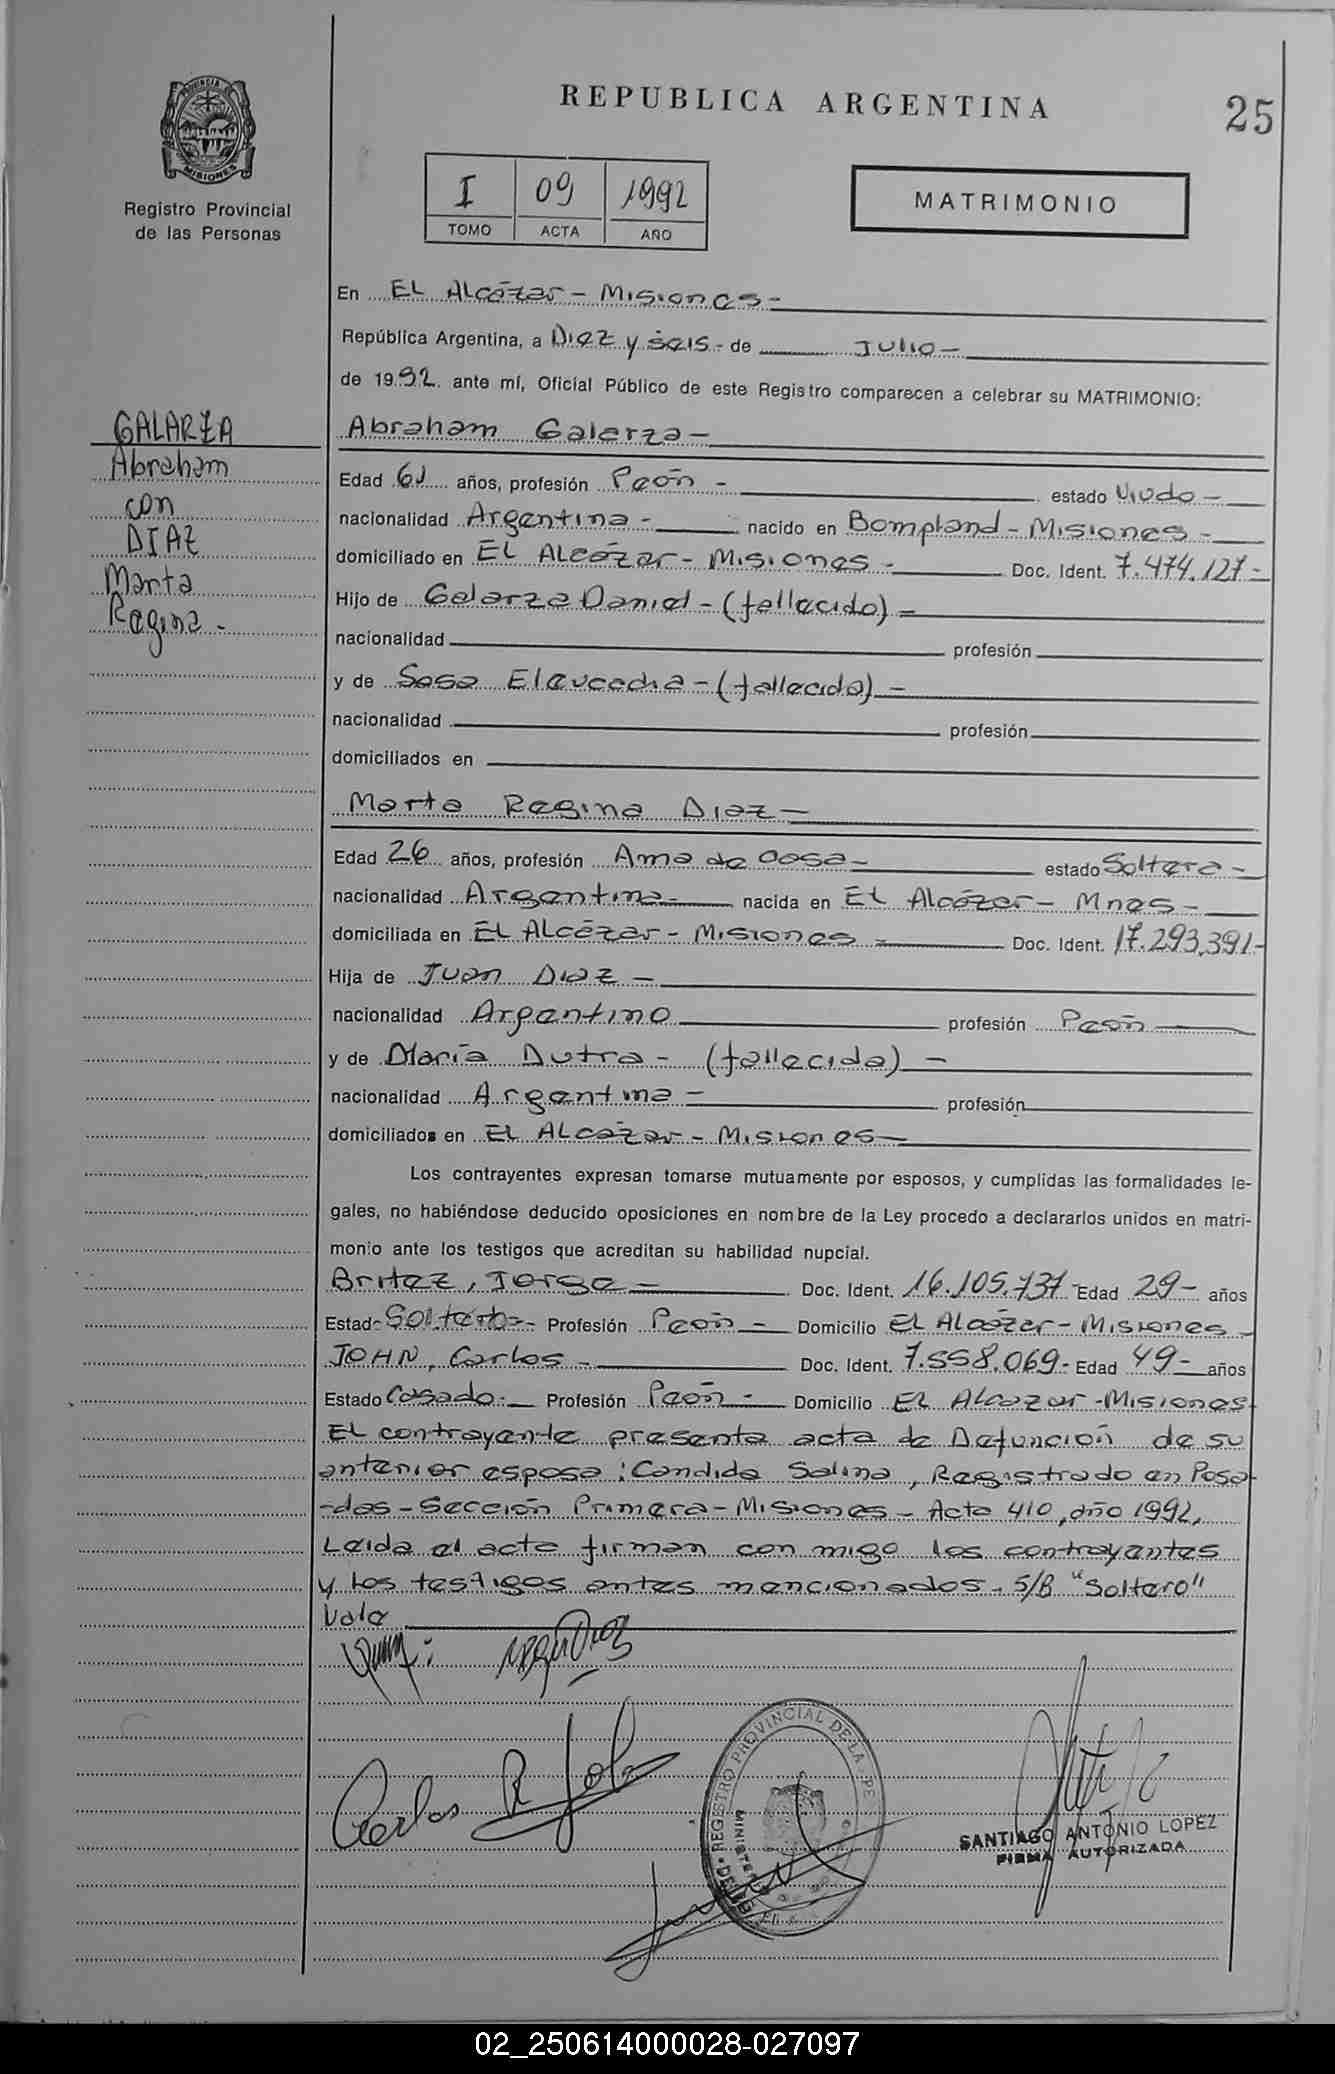 REPUBLICA ARGENTINA
25
PROVINCIA DE MISIONES
Registro Provincial
de las Personas
I 09 1992
TOMO ACTA AÑO
MATRIMONIO
En El Alcázar - Misiones -
República Argentina, a Diez y seis - de Julio -
de 1992. ante mí, Oficial Público de este Registro comparecen a celebrar su MATRIMONIO:
GALARZA
Abraham
con
DIAZ
Marta
Regina -
Abraham Galarza -
Edad 61 años, profesión Peón - estado Viudo -
nacionalidad Argentina - nacido en Bompland - Misiones -
domiciliado en El Alcázar - Misiones - Doc. Ident. 7.474.127 -
Hijo de Galarza Daniel - (fallecido) -
nacionalidad profesión
y de Sosa - (fallecida) -
nacionalidad profesión
domiciliados en
Marta Regina Diaz -
Edad 26 años, profesión Ama de casa - estado Soltera -
nacionalidad Argentina - nacida en El Alcázar - Mnes -
domiciliada en El Alcázar - Misiones - Doc. Ident. 17.293.391 -
Hija de Juan Diaz -
nacionalidad Argentino profesión Peón
y de María Dutra - (fallecida) -
nacionalidad Argentina - profesión
domiciliados en El Alcázar - Misiones -
Los contrayentes expresan tomarse mutuamente por esposos, y cumplidas las formalidades le-
gales, no habiéndose deducido oposiciones en nombre de la Ley procedo a declararlos unidos en matri-
monio ante los testigos que acreditan su habilidad nupcial.
Britez, Jorge - Doc. Ident. 16.105.737 - Edad 29 - años
Estado Soltero - Profesión Peón - Domicilio El Alcázar - Misiones -
JOHN, Carlos - Doc. Ident. 7.558.069 - Edad 49 - años
Estado Casado - Profesión Peón - Domicilio El Alcazar - Misiones
El contrayente presenta acta de Defunción de su
anterior esposa: Candida Salina, Registrado en Posa-
-das - Sección Primera - Misiones - Acta 410, año 1992,
Leida el acta firman con migo los contrayentes
y los testigos antes mencionados - S/B "Soltero"
Vale
Carlos R John
REGISTRO PROVINCIAL DE LA PE
SANTIAGO ANTONIO LOPEZ
FIRMA AUTORIZADA
02_250614000028-027097